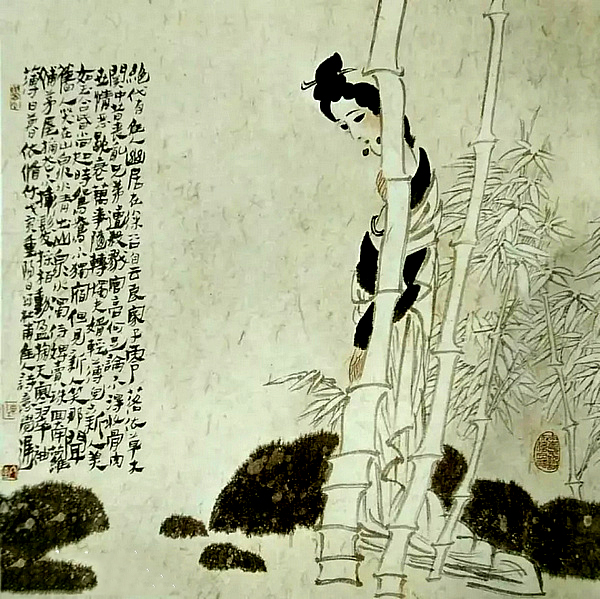 絕代有佳人幽居在深谷自云良家子零落依草木
關中昔喪亂兄弟遭殺戮官高何足論不得收骨肉
世情惡歇衰萬事隨轉燭夫婿輕薄兒新人美
如玉合昏尚知時鴛鴦不獨宿但見新人笑那聞
舊人哭在山泉水清出山泉水濁侍婢賣珠回牽蘿
補茅屋摘花不插髮採柏動盈掬天寒翠袖
薄日暮依脩竹 亥重陽日 杜甫佳人詩意